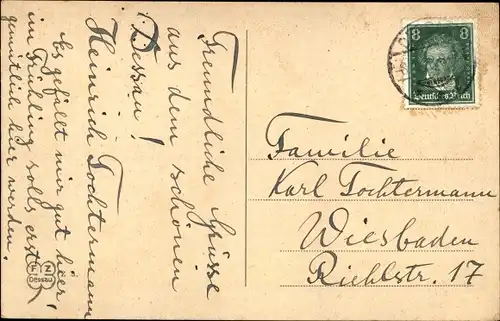 Freundliche Grüsse
aus dem schönen
Dessau!
Heinrich Tochtermann
Es gefällt mir gut hier,
im Frühling solls erst
gemütlich hier werden.
F Z
Dessau
8 8
Deutsches Reich
Familie
Karl Tochtermann
Wiesbaden
Riehlstr. 17